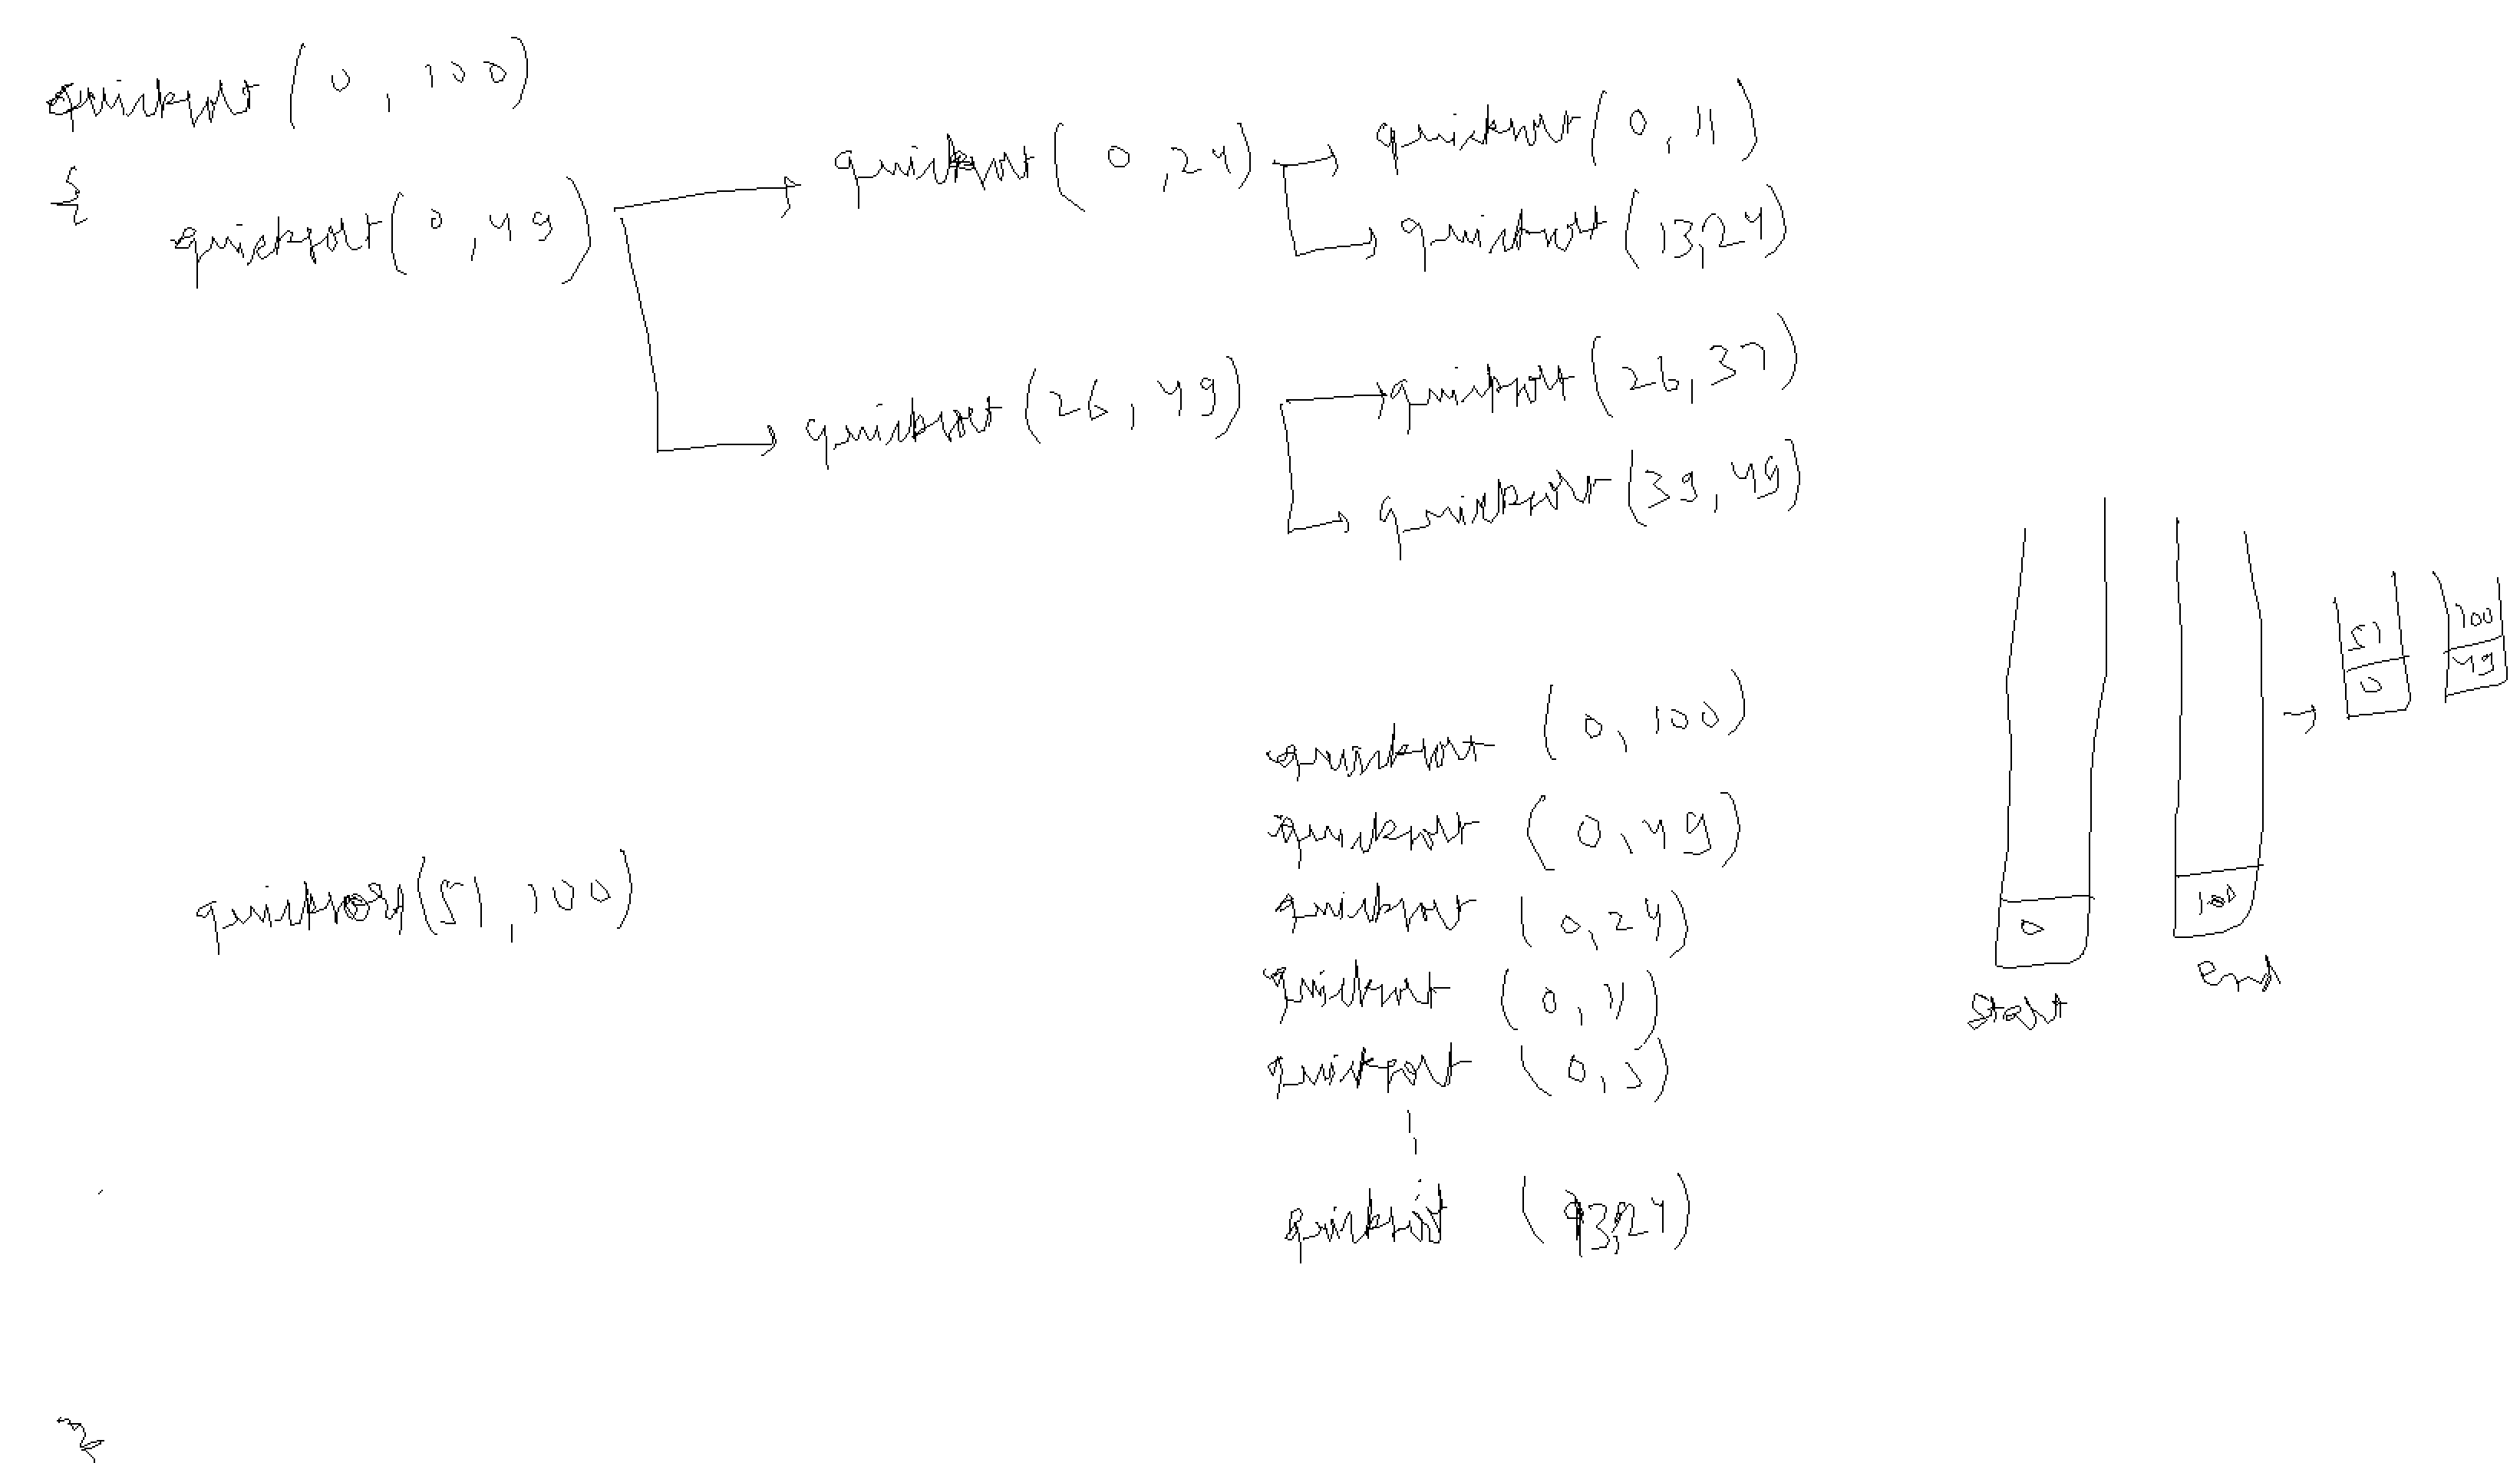 quicksort (0, 100)
{
quicksort (0, 49)
quicksort (0, 24)
quicksort (0, 11)
quicksort (13, 24)
quicksort (26, 49)
quicksort (26, 37)
quicksort (39, 49)
quicksort (51, 100)
}
quicksort (0, 100)
quicksort (0, 49)
quicksort (0, 24)
quicksort (0, 11)
quicksort (0, 5)
quicksort (13, 24)
0
start
100
end
51
0
100
49